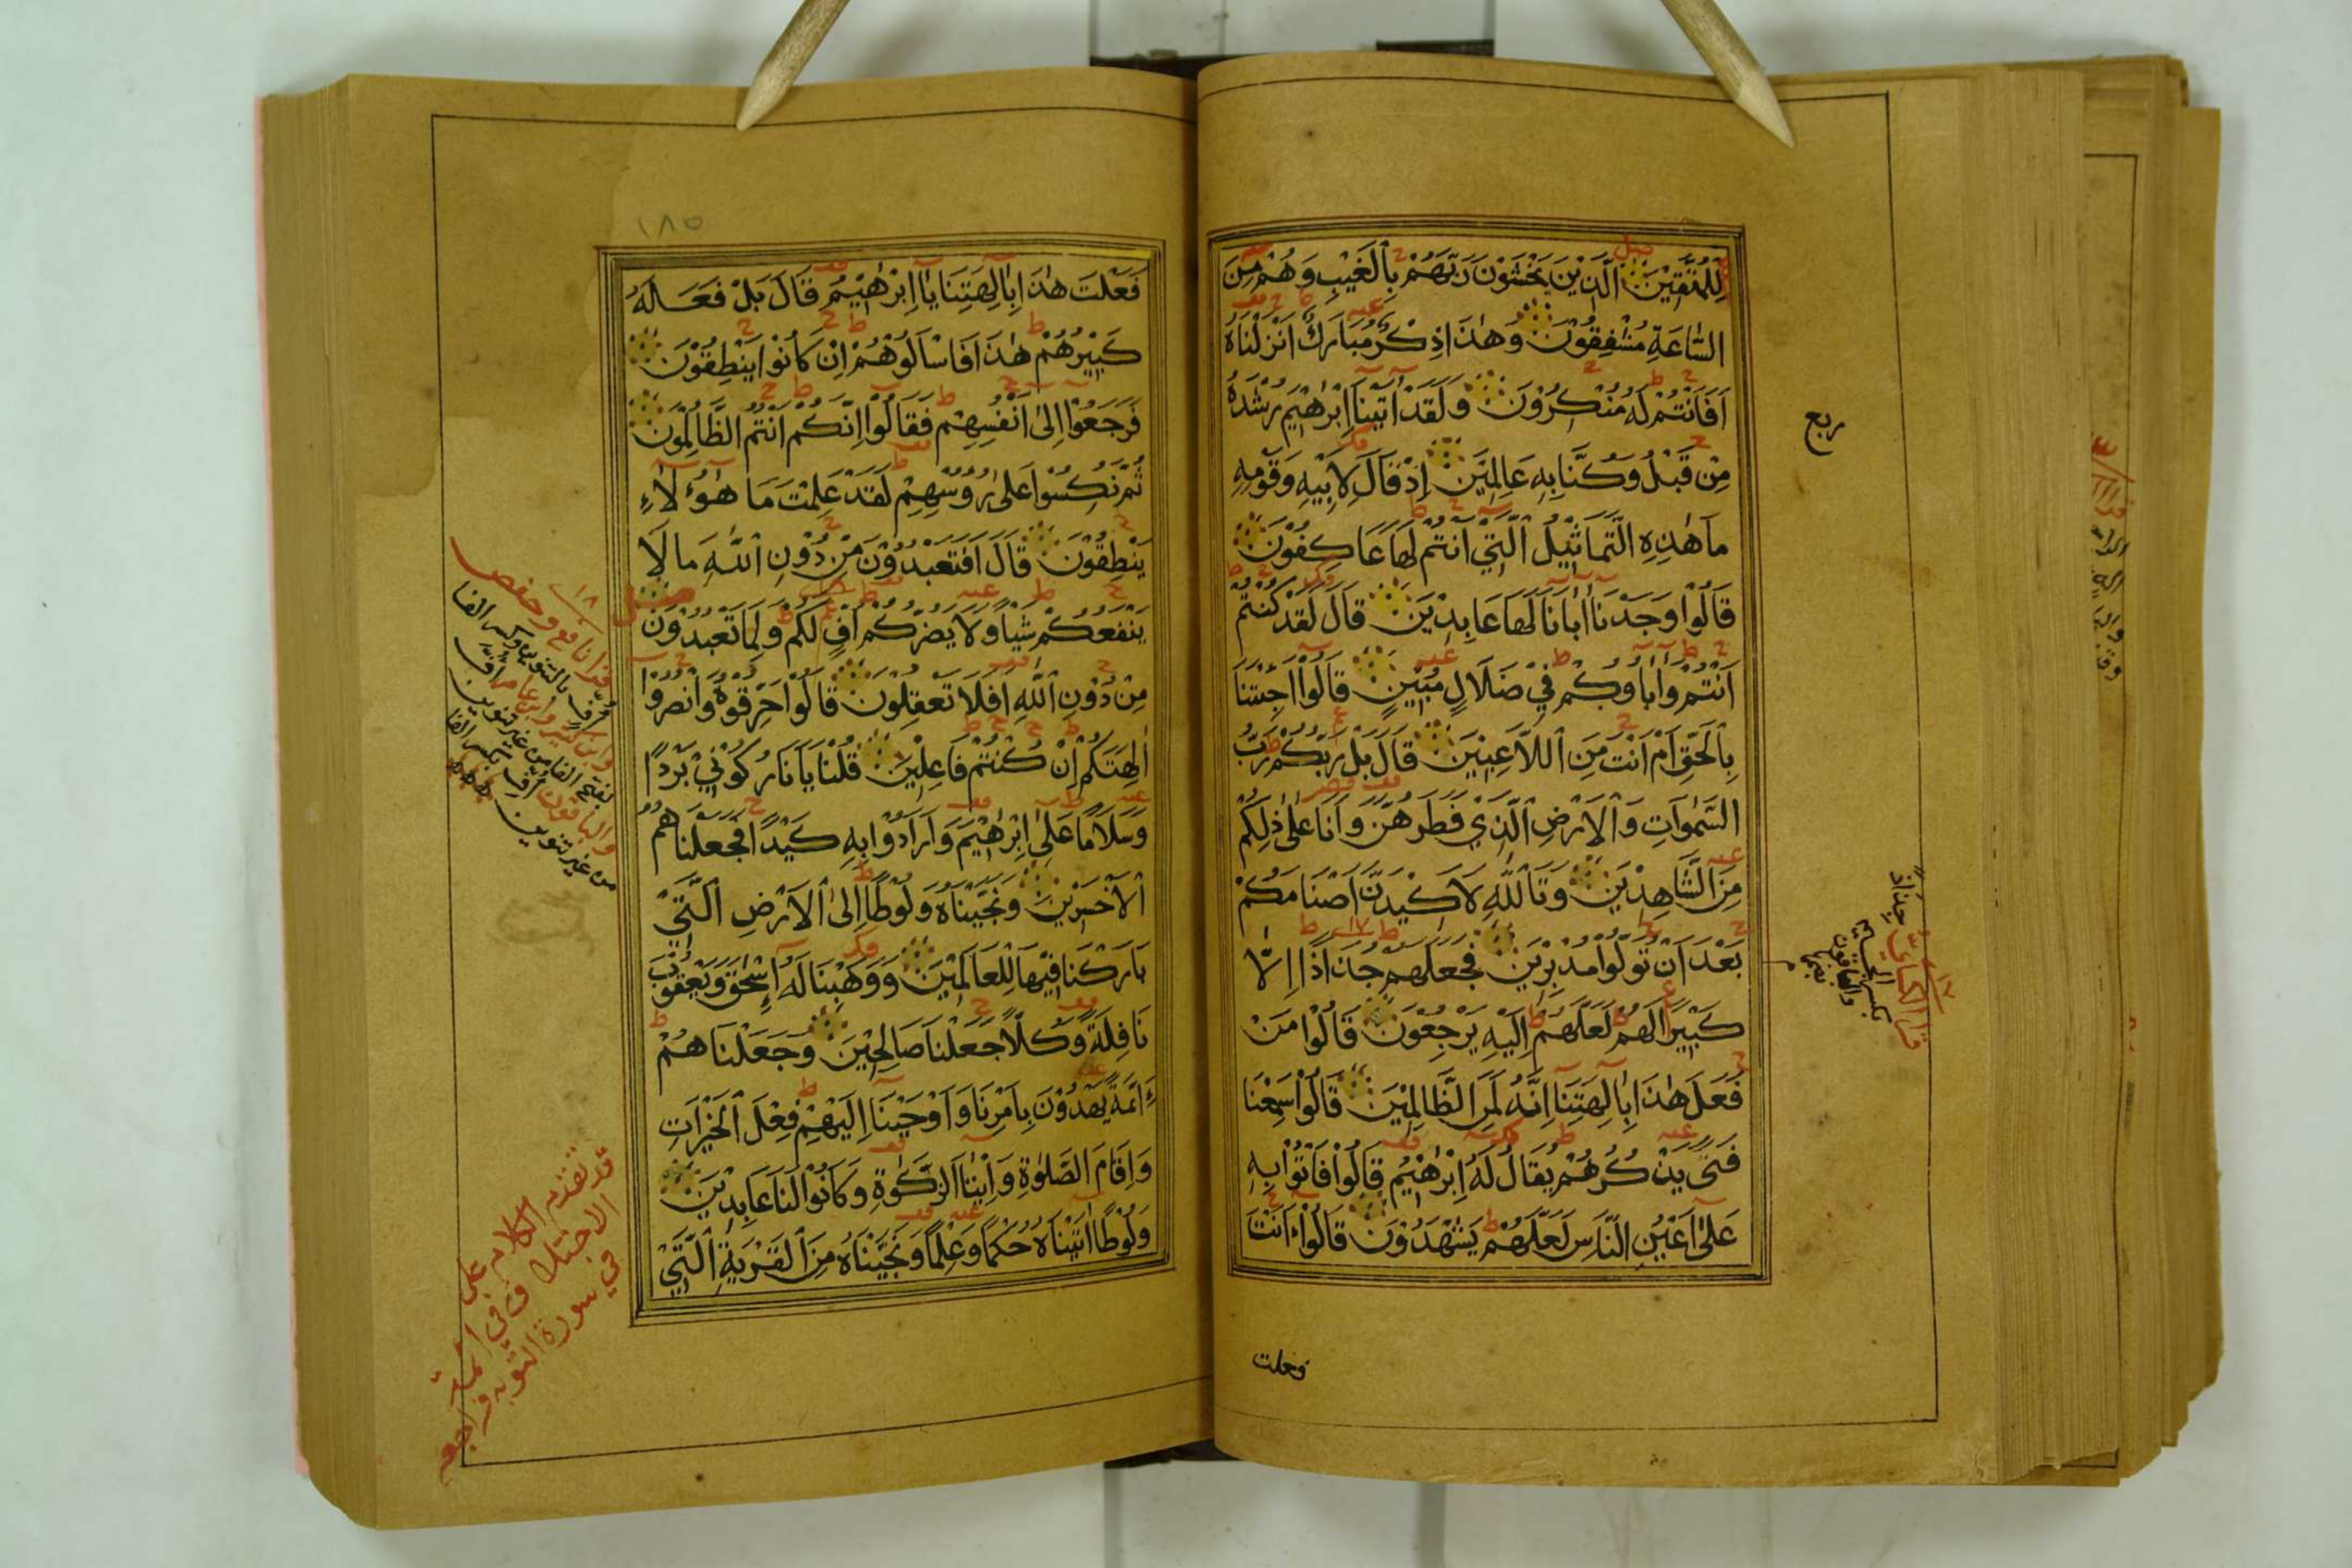 لِلْمُتَّقِيْنَ الَّذِيْنَ يَخْشَوْنَ رَبَّهُمْ بِالْغَيْبِ وَهُمْ مِنَ
السَّاعَةِ مُشْفِقُوْنَ وَهٰذَا ذِكْرٌ مُبَارَكٌ اَنْزَلْنَاهُ
اَفَاَنْتُمْ لَهُ مُنْكِرُوْنَ وَلَقَدْ اٰتَيْنَا اِبْرٰهِيْمَ رُشْدَهُ
مِنْ قَبْلُ وَكُنَّا بِهِ عَالِمِيْنَ اِذْ قَالَ لِاَبِيْهِ وَقَوْمِهِ
مَا هٰذِهِ التَّمَاثِيْلُ الَّتِيْ اَنْتُمْ لَهَا عَاكِفُوْنَ
قَالُوْا وَجَدْنَا اٰبَانَا لَهَا عَابِدِيْنَ قَالَ لَقَدْ كُنْتُمْ
اَنْتُمْ وَاٰبَاوُكُمْ فِيْ ضَلَالٍ مُبِيْنٍ قَالُوْا اَجِئْتَنَا
بِالْحَقِّ اَمْ اَنْتَ مِنَ اللَّاعِبِيْنَ قَالَ بَلْ رَبُّكُمْ رَبُّ
السَّمٰوَاتِ وَالْاَرْضِ الَّذِيْ فَطَرَهُنَّ وَاَنَا عَلٰى ذٰلِكُمْ
مِنَ الشَّاهِدِيْنَ وَتَاللّٰهِ لَاَكِيْدَنَّ اَصْنَامَكُمْ
بَعْدَ اَنْ تُوَلُّوْا مُدْبِرِيْنَ فَجَعَلَهُمْ جُذَاذًا اِلَّا
كَبِيْرًا لَهُمْ لَعَلَّهُمْ اِلَيْهِ يَرْجِعُوْنَ قَالُوْا مَنْ
فَعَلَ هٰذَا بِاٰلِهَتِنَا اِنَّهُ لَمِنَ الظَّالِمِيْنَ قَالُوْا سَمِعْنَا
فَتًى يَذْكُرُهُمْ يُقَالُ لَهُ اِبْرٰهِيْمُ قَالُوْا فَاْتُوْا بِهِ
عَلٰى اَعْيُنِ النَّاسِ لَعَلَّهُمْ يَشْهَدُوْنَ قَالُوْا ءَاَنْتَ
فعلت
ربع
قرا الكسائي جِذاذًا
بكسر الجيم
والباقون
بضمها
١٨٥
فَعَلْتَ هٰذَا بِاٰلِهَتِنَا يَا اِبْرٰهِيْمُ قَالَ بَلْ فَعَلَهُ
كَبِيْرُهُمْ هٰذَا فَاسْاَلُوْهُمْ اِنْ كَانُوْا يَنْطِقُوْنَ
فَرَجَعُوْا اِلٰى اَنْفُسِهِمْ فَقَالُوْا اِنَّكُمْ اَنْتُمُ الظَّالِمُوْنَ
ثُمَّ نُكِسُوْا عَلٰى رُؤُسِهِمْ لَقَدْ عَلِمْتَ مَا هٰؤُلَاءِ
يَنْطِقُوْنَ قَالَ اَفَتَعْبُدُوْنَ مِنْ دُوْنِ اللّٰهِ مَا لَا
يَنْفَعُكُمْ شَيْاً وَلَا يَضُرُّكُمْ اُفٍّ لَكُمْ وَلِمَا تَعْبُدُوْنَ
مِنْ دُوْنِ اللّٰهِ اَفَلَا تَعْقِلُوْنَ قَالُوْا حَرِّقُوْهُ وَانْصُرُوْا
اٰلِهَتَكُمْ اِنْ كُنْتُمْ فَاعِلِيْنَ قُلْنَا يَا نَارُ كُوْنِيْ بَرْدًا
وَسَلَامًا عَلٰى اِبْرٰهِيْمَ وَاَرَادُوْا بِهِ كَيْدًا فَجَعَلْنَاهُمُ
الْاَخْسَرِيْنَ وَنَجَّيْنَاهُ وَلُوْطًا اِلَى الْاَرْضِ الَّتِيْ
بَارَكْنَا فِيْهَا لِلْعَالَمِيْنَ وَوَهَبْنَا لَهُ اِسْحٰقَ وَيَعْقُوْبَ
نَافِلَةً وَكُلًّا جَعَلْنَا صَالِحِيْنَ وَجَعَلْنَاهُمْ
ءَائِمَّةً يَهْدُوْنَ بِاَمْرِنَا وَاَوْحَيْنَا اِلَيْهِمْ فِعْلَ الْخَيْرَاتِ
وَاِقَامَ الصَّلٰوةِ وَاِيْتَاءَ الزَّكٰوةِ وَكَانُوْا لَنَا عَابِدِيْنَ
وَلُوْطًا اٰتَيْنَاهُ حُكْمًا وَعِلْمًا وَنَجَّيْنَاهُ مِنَ الْقَرْيَةِ الَّتِيْ
قرا نافع وحفص
اُفٍّ بالتنوين وكسر الفا
وابن كثير وابن عامر افَّ
بفتح الفا من غير تنوين
والباقون اُفِّ بكسر الفا
من غير تنوين
قد تقدم الكلام على
الاختلاف في ائمة
في سورة التوبه فراجعه